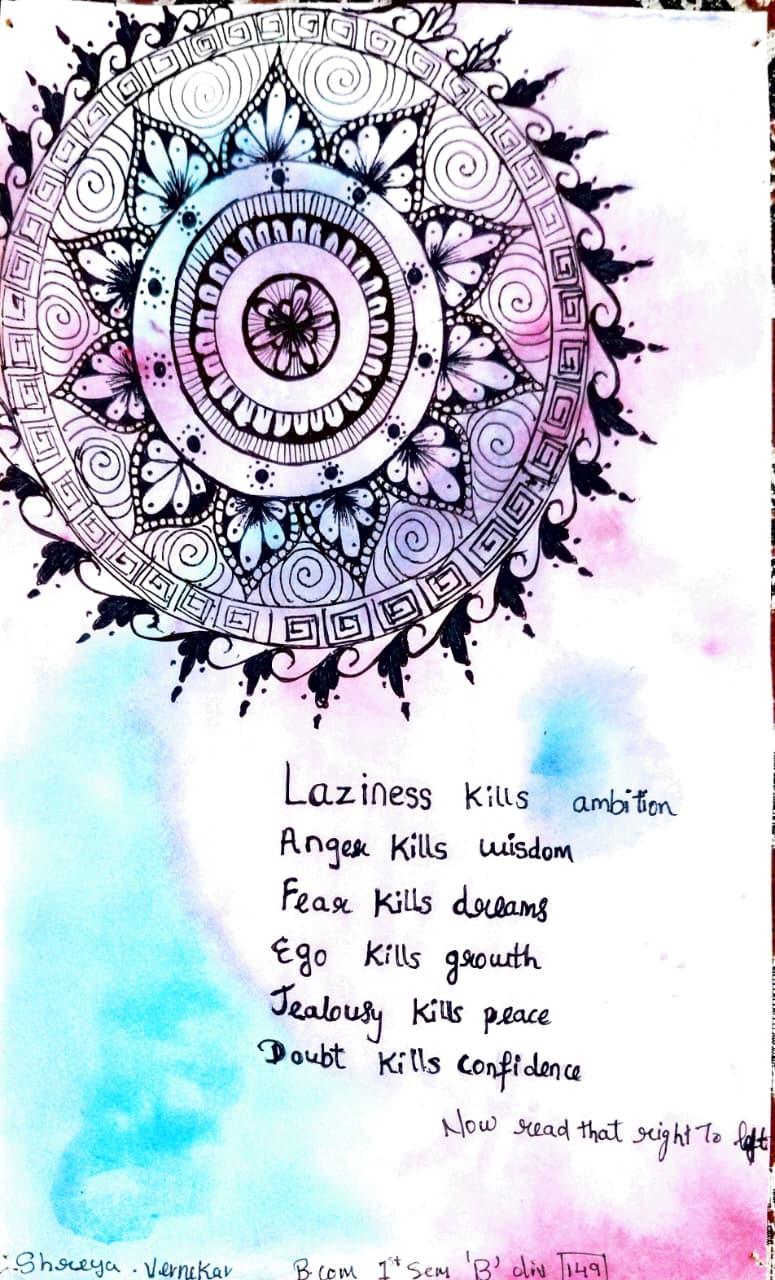 Laziness Kills ambition
Anger Kills wisdom
Fear Kills dreams
Ego Kills growth
Jealousy Kills peace
Doubt Kills confidence
Now read that right To left
Shreya . Vernekar B.com 1st Sem 'B' div 149